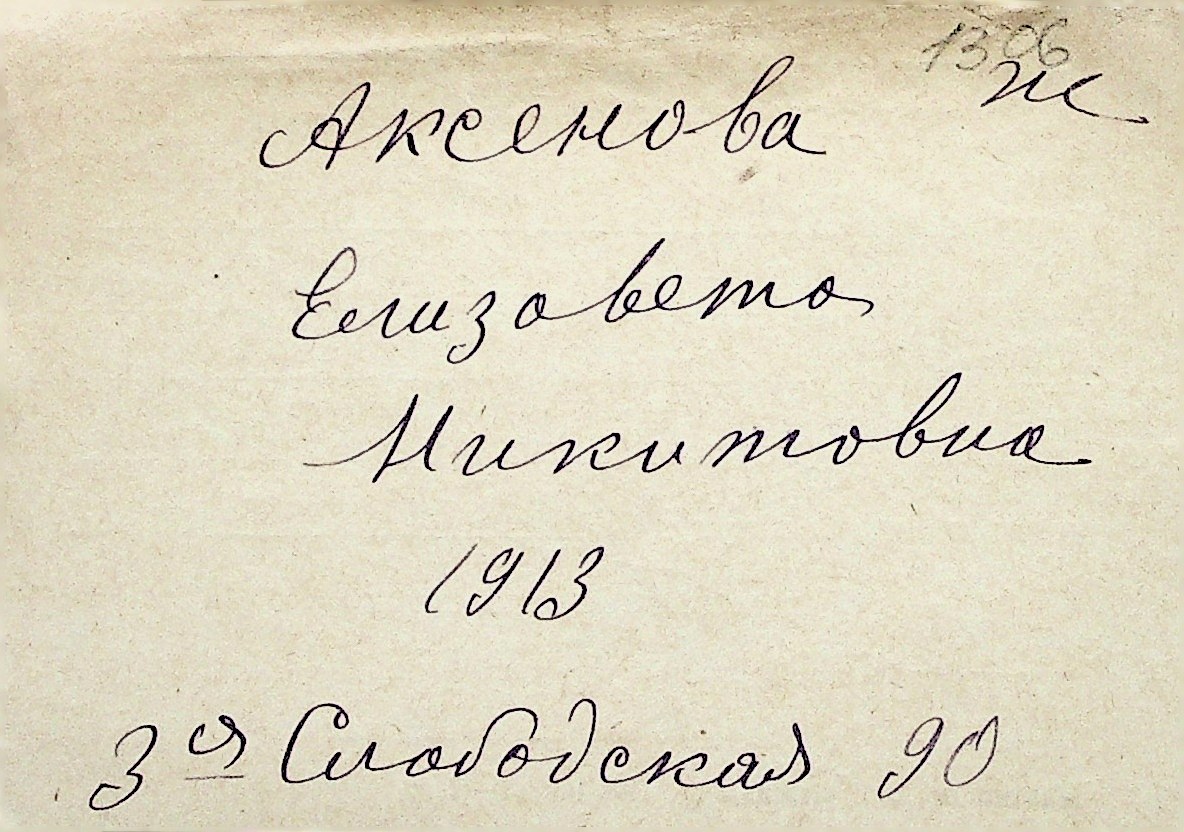 1306
Аксенова ж
Елизавета
Никитовна
1913
3ья Слободская 90